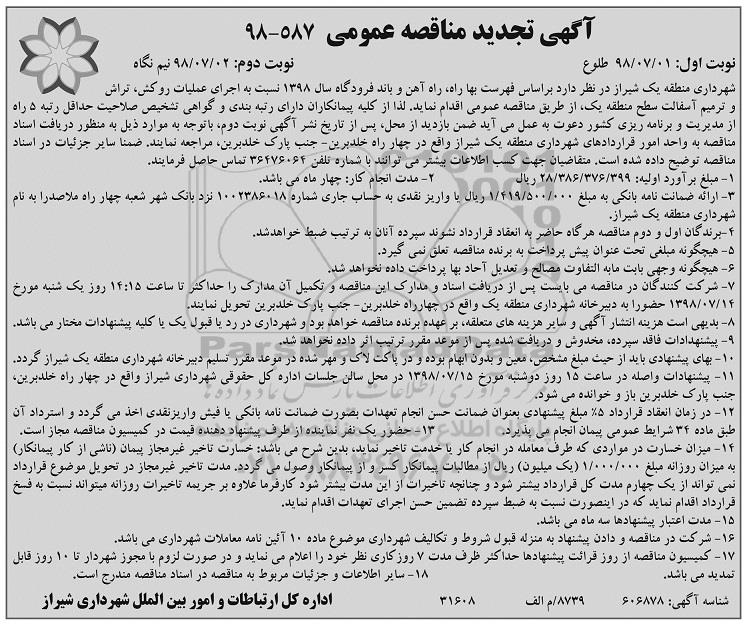 آگهی تجدید مناقصه عمومی ۵۸۷-۹۸
نوبت اول: ۹۸/۰۷/۰۱ طلوع
نوبت دوم: ۹۸/۰۷/۰۲ نیم نگاه
شهرداری منطقه یک شیراز در نظر دارد براساس فهرست بها راه، راه آهن و باند فرودگاه سال ۱۳۹۸ نسبت به اجرای عملیات روکش، تراش
و ترمیم آسفالت سطح منطقه یک، از طریق مناقصه عمومی اقدام نماید. لذا از کلیه پیمانکاران دارای رتبه بندی و گواهی تشخیص صلاحیت حداقل رتبه ۵ راه
از مدیریت و برنامه ریزی کشور دعوت به عمل می آید ضمن بازدید از محل، پس از تاریخ نشر آگهی نوبت دوم، باتوجه به موارد ذیل به منظور دریافت اسناد
مناقصه به واحد امور قراردادهای شهرداری منطقه یک شیراز واقع در چهار راه خلدبرین- جنب پارک خلدبرین، مراجعه نمایند. ضمنا سایر جزئیات در اسناد
مناقصه توضیح داده شده است. متقاضیان جهت کسب اطلاعات بیشتر می توانند با شماره تلفن ۳۶۴۷۶۰۶۴ تماس حاصل فرمایند.
۱- مبلغ برآورد اولیه: ۲۸/۳۸۶/۳۷۶/۳۹۹ ریال ۲- مدت انجام کار: چهار ماه می باشد.
۳- ارائه ضمانت نامه بانکی به مبلغ ۱/۴۱۹/۵۰۰/۰۰۰ ریال یا واریز نقدی به حساب جاری شماره ۱۰۰۲۳۸۶۰۱۸ نزد بانک شهر شعبه چهار راه ملاصدرا به نام
شهرداری منطقه یک شیراز.
۴-برندگان اول و دوم مناقصه هرگاه حاضر به انعقاد قرارداد نشوند سپرده آنان به ترتیب ضبط خواهدشد.
۵- هیچگونه مبلغی تحت عنوان پیش پرداخت به برنده مناقصه تعلق نمی گیرد.
۶- هیچگونه وجهی بابت مابه التفاوت مصالح و تعدیل آحاد بها پرداخت داده نخواهد شد.
۷- شرکت کنندگان در مناقصه می بایست پس از دریافت اسناد و مدارک این مناقصه و تکمیل آن مدارک را حداکثر تا ساعت ۱۴:۱۵ روز یک شنبه مورخ
۱۳۹۸/۰۷/۱۴ حضورا به دبیرخانه شهرداری منطقه یک واقع در چهارراه خلدبرین- جنب پارک خلدبرین تحویل نمایند.
۸- بدیهی است هزینه انتشار آگهی و سایر هزینه های متعلقه، بر عهده برنده مناقصه خواهد بود و شهرداری در رد یا قبول یک یا کلیه پیشنهادات مختار می باشد.
۹- پیشنهادات فاقد سپرده، مخدوش و دریافت شده پس از موعد مقرر ترتیب اثر داده نخواهد شد.
۱۰- بهای پیشنهادی باید از حیث مبلغ مشخص، معین و بدون ابهام بوده و در پاکت لاک و مهر شده در موعد مقرر تسلیم دبیرخانه شهرداری منطقه یک شیراز گردد.
۱۱- پیشنهادات واصله در ساعت ۱۵ روز دوشنبه مورخ ۱۳۹۸/۰۷/۱۵ در محل سالن جلسات اداره کل حقوقی شهرداری شیراز واقع در چهار راه خلدبرین،
جنب پارک خلدبرین باز و خوانده می شود.
۱۲- در زمان انعقاد قرارداد ۵٪ مبلغ پیشنهادی بعنوان ضمانت حسن انجام تعهدات بصورت ضمانت نامه بانکی یا فیش واریزنقدی اخذ می گردد و استرداد آن
طبق ماده ۳۴ شرایط عمومی پیمان انجام می پذیرد. ۱۳- حضور یک نفر نماینده از طرف پیشنهاد دهنده قیمت در کمیسیون مناقصه مجاز است.
۱۴- میزان خسارت در مواردی که طرف معامله در انجام کار یا خدمت تاخیر نماید، بدین شرح می باشد: خسارت تاخیر غیرمجاز پیمان (ناشی از کار پیمانکار)
به میزان روزانه مبلغ ۱/۰۰۰/۰۰۰ (یک میلیون) ریال از مطالبات پیمانکار، کسر و از پیمانکار وصول می گردد. مدت تاخیر غیرمجاز در تحویل موضوع قرارداد
نمی تواند از یک چهارم مدت کل قرارداد بیشتر شود و چنانچه تأخیرات از این مدت بیشتر شود کارفرما علاوه بر جریمه تاخیرات روزانه میتواند نسبت به فسخ
قرارداد اقدام نماید که در اینصورت نسبت به ضبط سپرده تضمین حسن اجرای تعهدات اقدام نماید.
۱۵- مدت اعتبار پیشنهادها سه ماه می باشد.
۱۶- شرکت در مناقصه و دادن پیشنهاد به منزله قبول شروط و تکالیف شهرداری موضوع ماده ۱۰ آئین نامه معاملات شهرداری می باشد.
۱۷- کمیسیون مناقصه از روز قرائت پیشنهادها حداکثر ظرف مدت ۷ روزکاری نظر خود را اعلام می نماید و در صورت لزوم با مجوز شهردار تا ۱۰ روز قابل
تمدید می باشد. ۱۸- سایر اطلاعات و جزئیات مربوط به مناقصه در اسناد مناقصه مندرج است.
شناسه آگهی: ۶۰۶۸۷۸ ۸۷۳۹/م الف ۳۱۶۰۸ اداره کل ارتباطات و امور بین الملل شهرداری شیراز